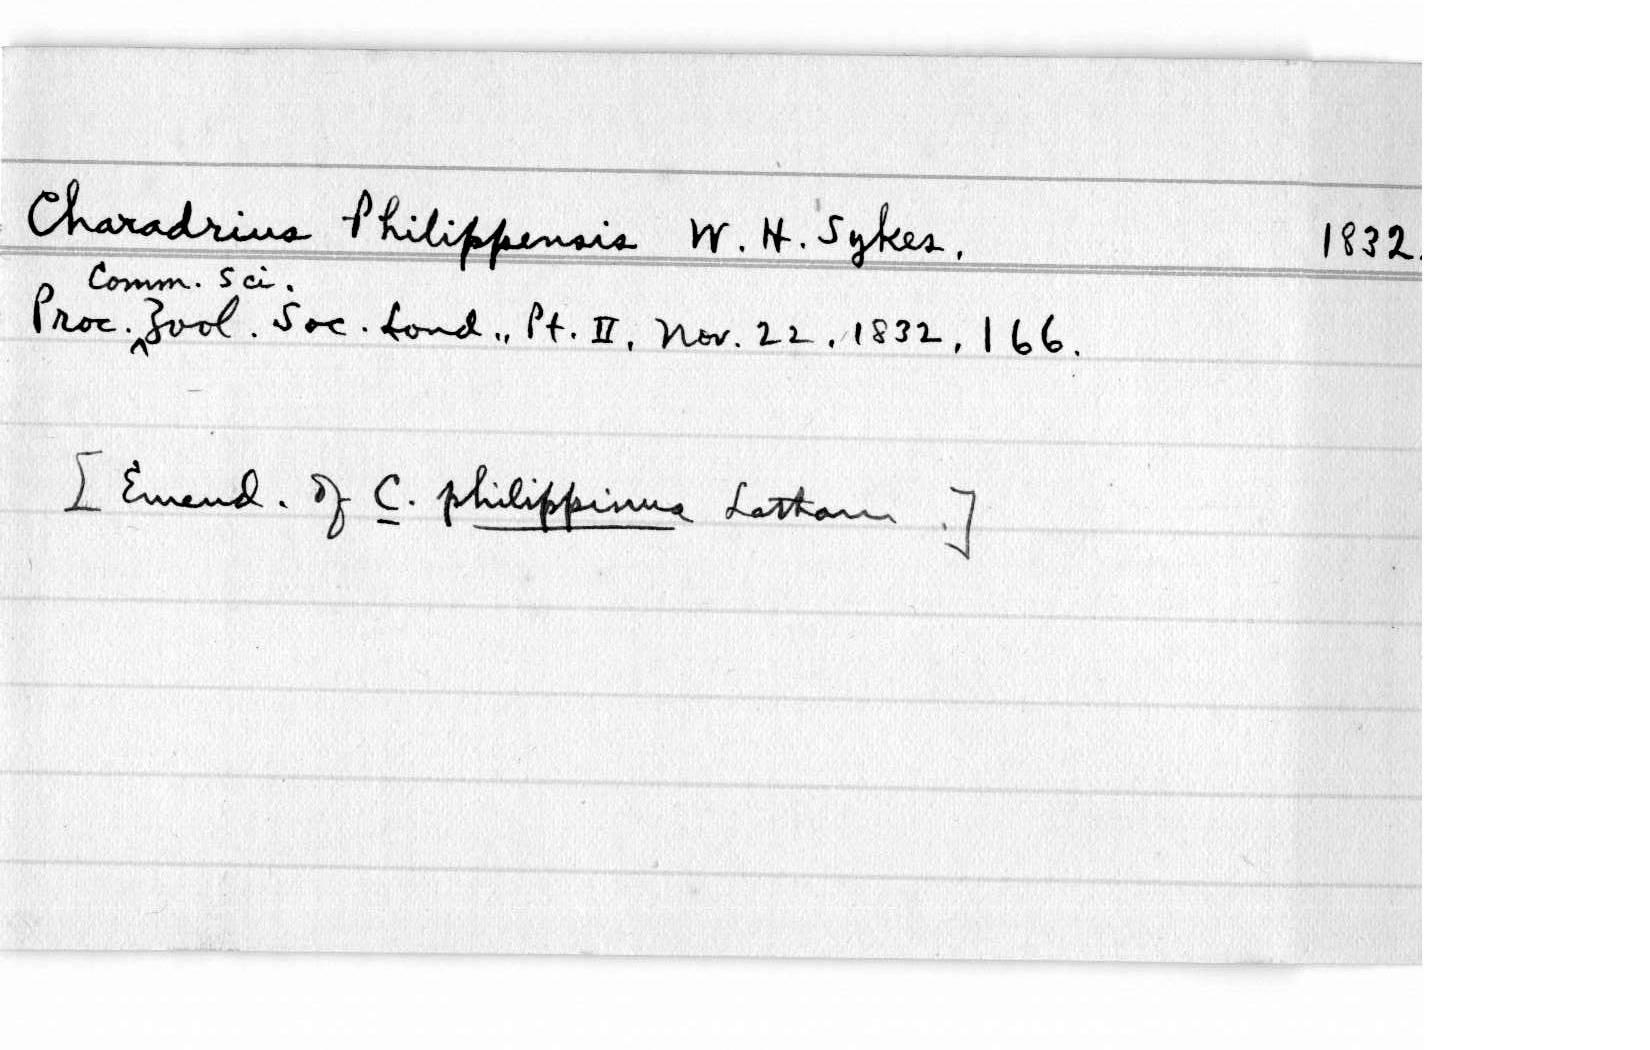 Charadrius Philippensis W. H. Sykes. 1832.
Comm. Sci.
Proc. ^ Zool. Soc. Lond., Pt. II, Nov. 22, 1832, 166.
[Emend. of C. philippinus Latham.]